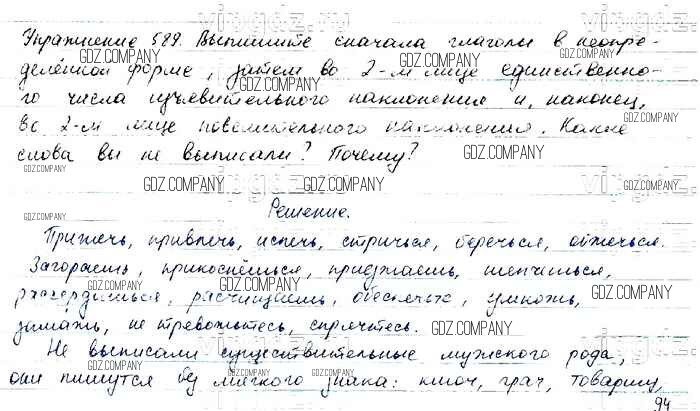 Упражнение 589. Выпишите сначала глаголы в неопре-
делённой форме, затем во 2-м лице единственно-
го числа изъявительного наклонения и, наконец,
во 2-м лице повелительного наклонения. Какие
слова вы не выписали? Почему?
Решение.
Прижечь, привлечь, испечь, стричься, беречься, обжечься.
Загораешь, прикоснёшься, приезжаешь,
рассердишься, расчищаешь, обеспечь, умножь,
не тревожьтесь, спрячьтесь.
Не выписали существительные мужского рода,
они пишутся без мягкого знака: ключ, грач, товарищ,
94